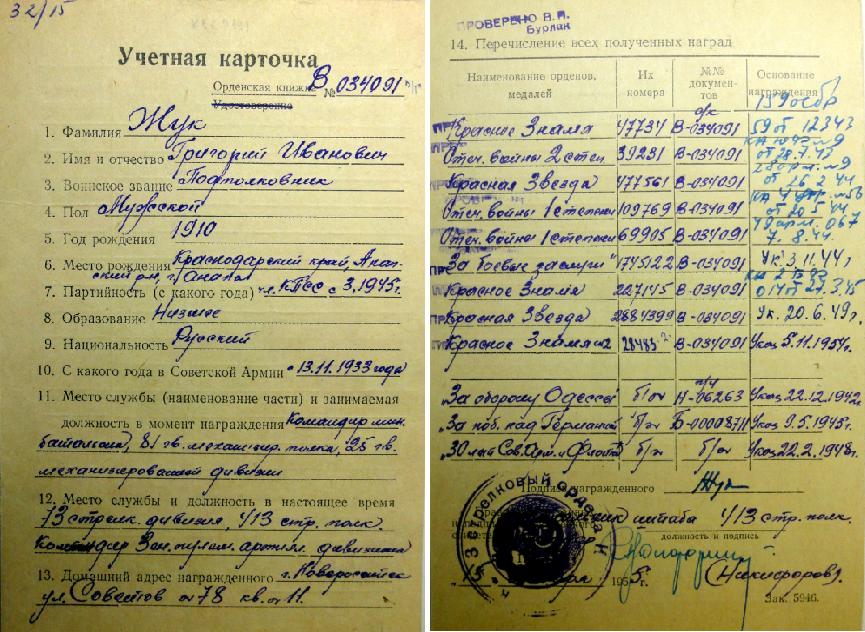 32/15
Учетная карточка
Орденская книжка В № 034091
Удостоверение
1. Фамилия Жук
2. Имя и отчество Григорий Иванович
3. Воинское звание Подполковник
4. Пол Мужской
5. Год рождения 1910
6. Место рождения Краснодарский край, Анап-
ский г. Анапа
7. Партийность (с какого года) КПСС с 3.1945г.
8. Образование Низшее
9. Национальность Русский
10. С какого года в Советской Армии 13.11.1933 года
11. Место службы (наименование части) и занимаемая
должность в момент награждения Командир мин.
батальона, 81 гв. механизир. полка, 25 гв.
механизированной дивизии
12. Место службы и должность в настоящее время
73 стрелк. дивизия, 413 стр. полк.
Командир Зен. пулем. артил. дивизиона
13. Домашний адрес награжденного г. Новороссийск
ул. Советов 78 кв. 11.
ПРОВЕРЕНО В.П.
Бурлак
14. Перечисление всех полученных наград
Наименование орденов, медалей Их номера №№ документов Основание награждения
о/к
Красное Знамя 47734 В-034091 59 от 12 3 43
Отеч. войны 2 степ 39281 В-034091 от 28.7.43
Красная Звезда 477561 В-034091 от 26 2 44
Отеч. войны 1 степени 109769 В-034091 от 20 5 44
Отеч. войны 1 степени 69905 В-034091 7. 8. 44
"За боевые заслуги" 1745122 В-034091 Ук. 3.11.44г
Красное Знамя 227145 В-034091
Красная Звезда 2884399 В-034091 Ук. 20.6.49г.
Красное Знамя 28485 В-034091 Указ 5.11.1954г.
"За оборону Одессы" б/н Н-06263 Указ 22.12.1942г.
"За поб. над Германией" б/н Указ 9.5.1945г.
"30 лет Сов. Арм. и Флота" б/н б/н Указ 22.2.1948г.
Подпись награжденного Жук
штаба 413 стр. полк.
должность и подпись
1955г. (Никифоров).
Зак. 5946.